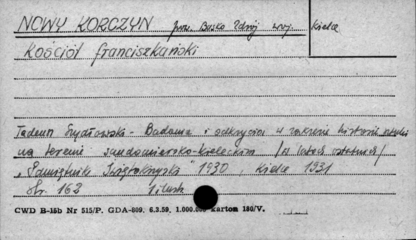 NOWY KORCZYN pow. Busko Zdrój woj. Kielce
Kościół franciszkański
Tadeusz Szydłowski - Badania i odkrycia w zakresie historii sztuki
na terenie sandomiersko-kieleckim /w latach ostatnich/
"Pamiętnik Świętokrzyski" 1930, Kielce 1931
str. 162 1 ilustr.
CWD B-15b Nr 515/P. GDA-809. 6.3.59. 1.000.000 karton 180/V.